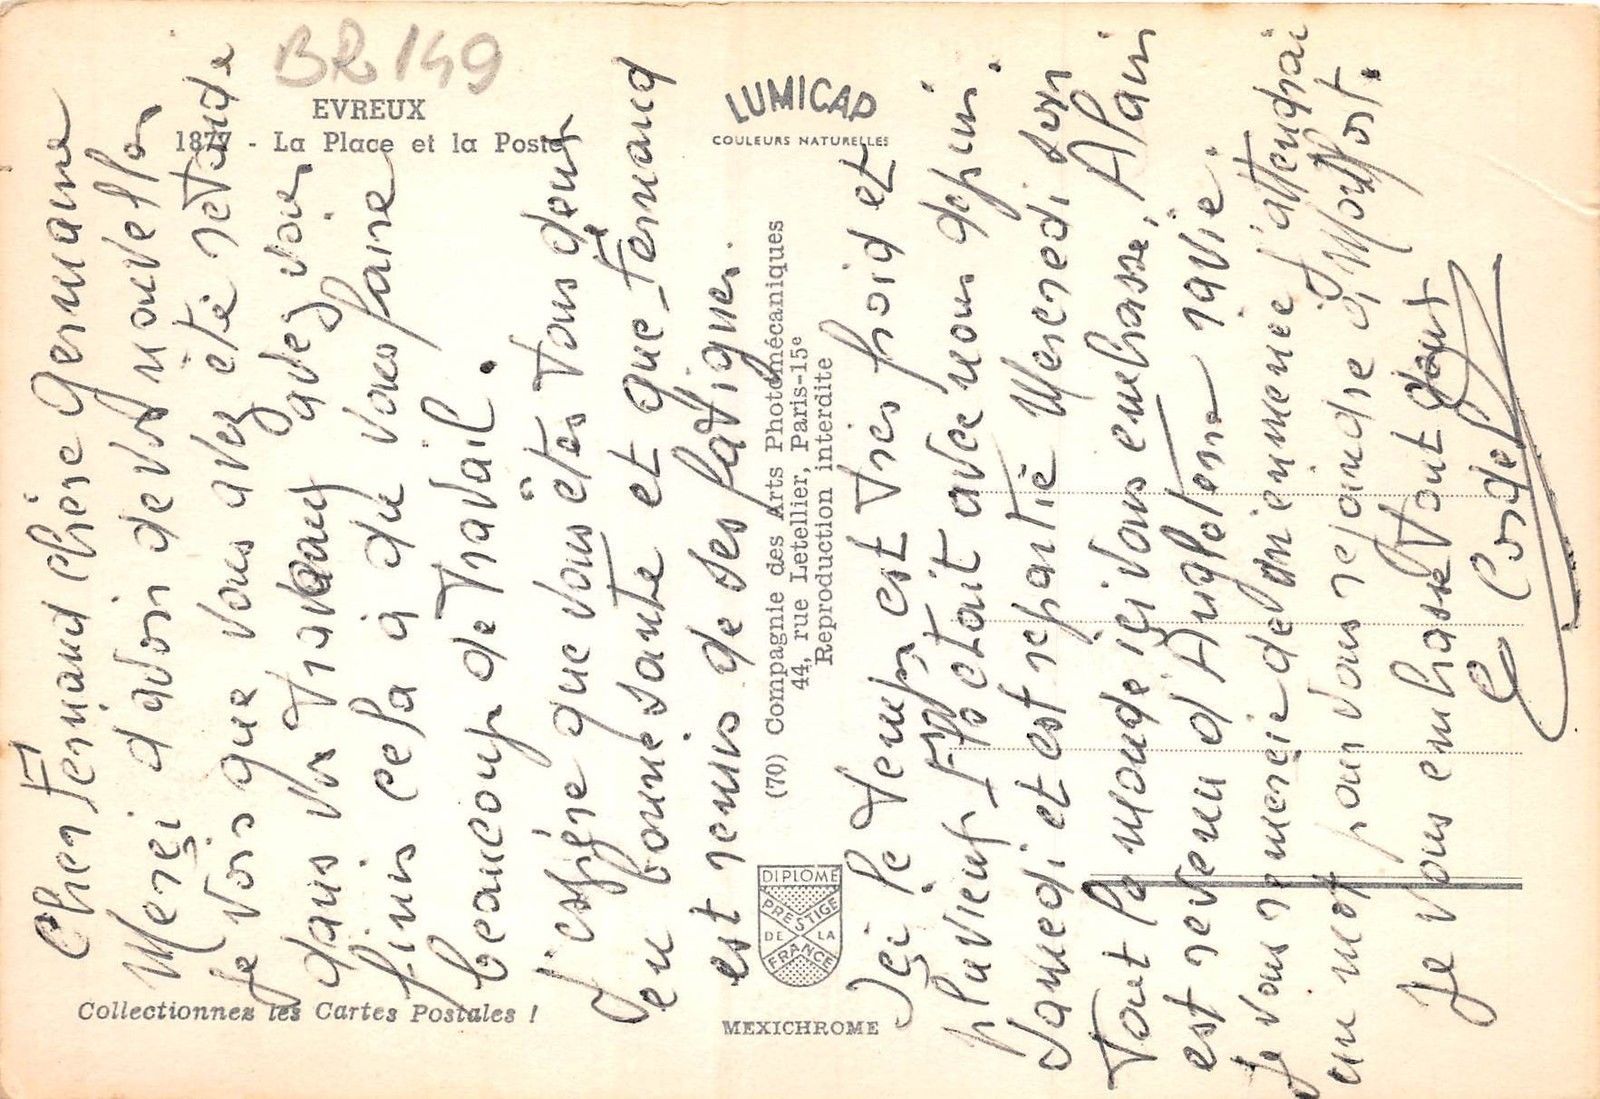 BR 149
EVREUX
1877 - La Place et la Poste
LUMICAP
COULEURS NATURELLES
(70) Compagnie des Arts Photomécaniques
44, rue Letellier, Paris-15e
Reproduction interdite
DIPLOME
PRESTIGE
DE LA
FRANCE
MEXICHROME
Collectionnez les Cartes Postales !
Cher Fernand chère Germaine
Merçi d'avoir de vos nouvelles
Je vois que vous avez été retardé
dans vos travaux avez voir
finis cela à du vous faire
beaucoup de travail.
J'espère que vous êtes tous deux
en bonne santé et que Fernand
est remis de ses fatigues.
Içi le temps est très froid et
pluvieux étoit avec nous depuis
Samedi et est repartie Mercredi soir
Tout le monde içi vous embrasse, Alain
est revenu d'Angleterre ravie.
Je vous remercie de m'emmener j'attendrai
un mot pour vous rejoindre à Montfort.
Je vous embrasse tout deux
Cordel